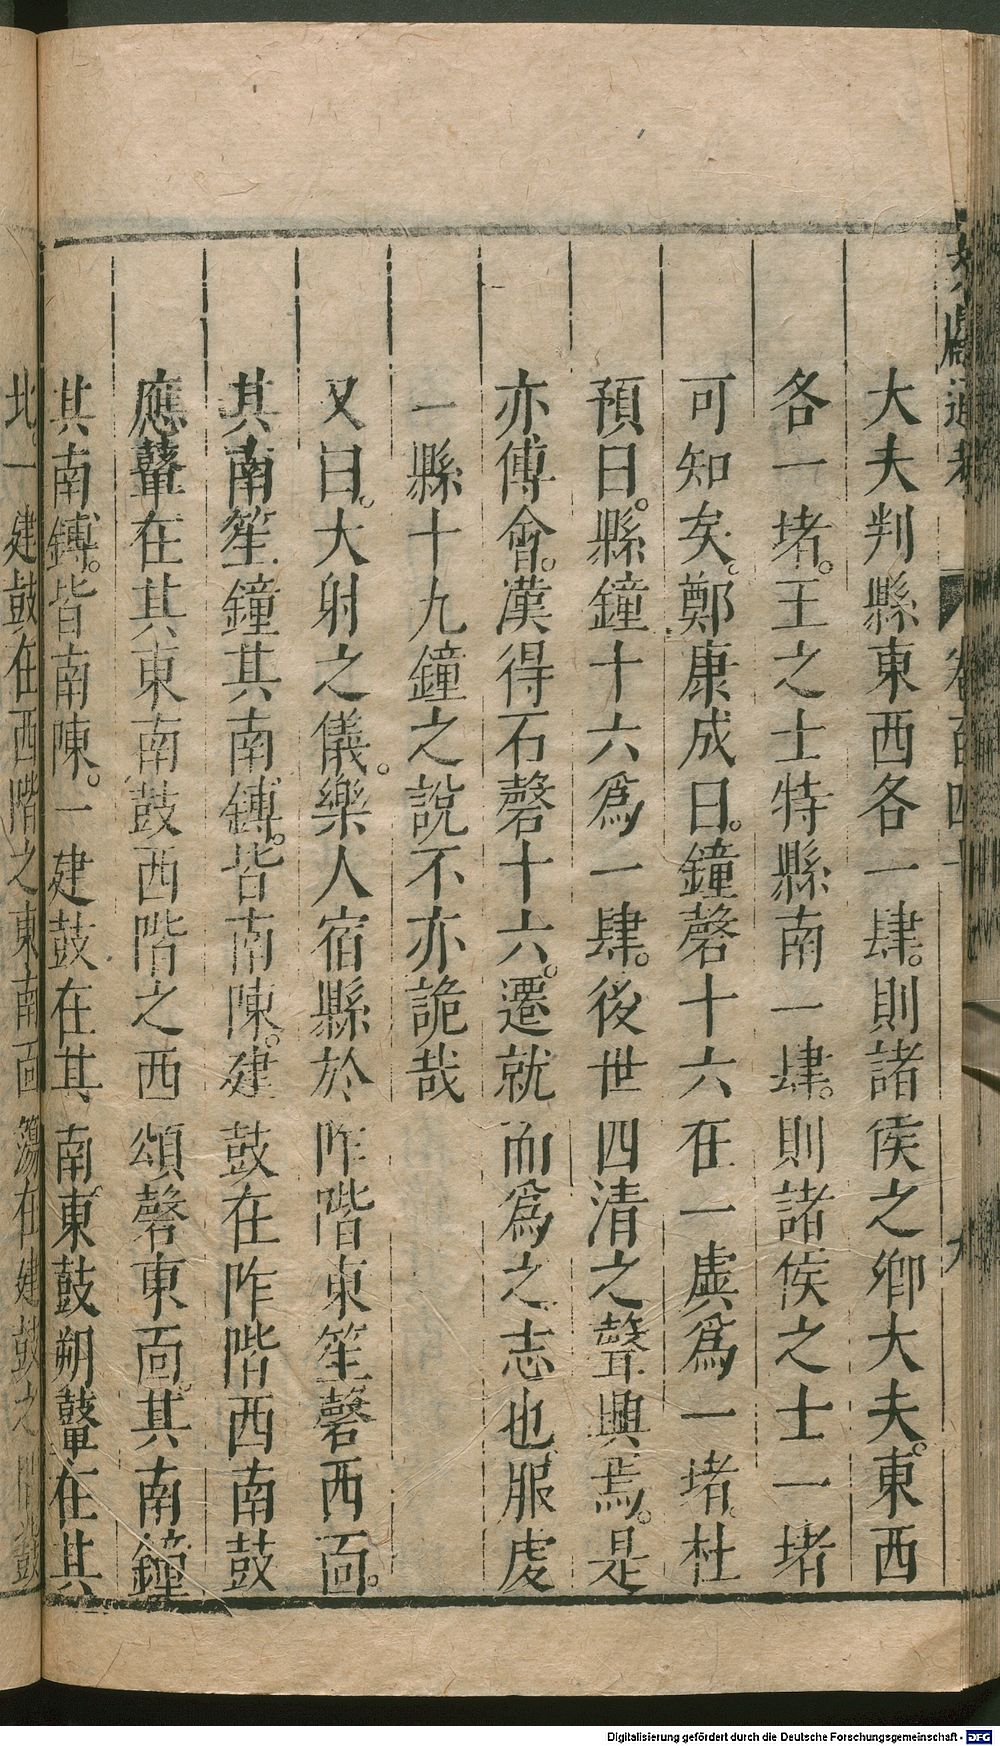 大夫判縣東西各一肆。則諸侯之卿大夫。東西
各一堵。王之士特縣南一肆。則諸侯之士一堵
可知矣。鄭康成曰。鐘磬十六在一虡爲一堵。杜
預曰。縣鐘十六爲一肆。後世四清之聲興焉。是
亦傅會。漢得石磬十六。遷就而爲之志也。服虔
一縣十九鐘之說不亦詭哉
又曰。大射之儀。樂人宿縣於阼階東笙磬西面。
其南笙鐘其南鑮。皆南陳。建鼓在阼階西南鼓
應鼙在其東南鼓西階之西頌磬東面。其南鐘
其南鑮。皆南陳。一建鼓在其南東鼓朔鼙在其
北。一建鼓在西階之東南面簜在建鼓之間鼗
Digitalisierung gefördert durch die Deutsche Forschungsgemeinschaft - DFG